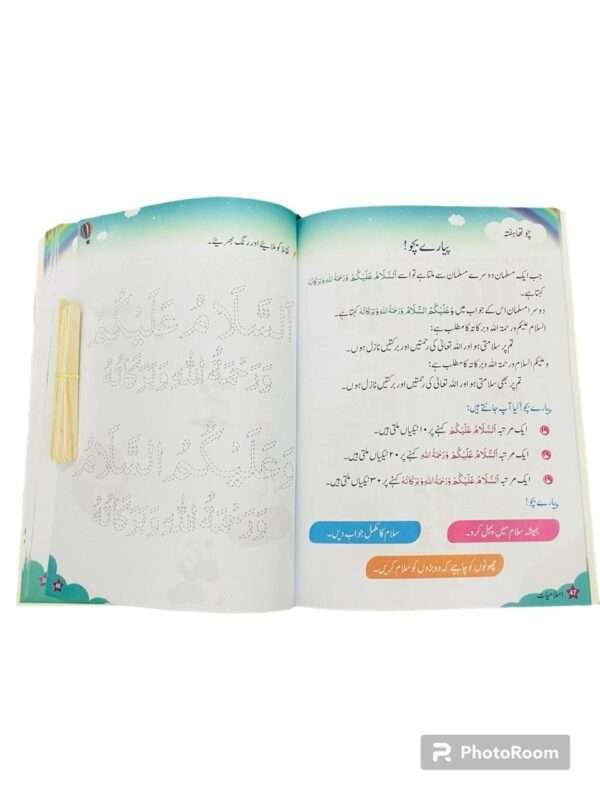 چوتھا ہفتہ
پیارے بچو!
جب ایک مسلمان دوسرے مسلمان سے ملتا ہے تو اسے اَلسَّلَامُ عَلَيْكُمْ وَرَحْمَةُ اللهِ وَبَرَكَاتُهُ
کہتا ہے۔
دوسرا مسلمان اس کے جواب میں وَعَلَيْكُمُ السَّلَامُ وَرَحْمَةُ اللهِ وَبَرَكَاتُهُ کہتا ہے۔
السلام علیکم ورحمۃ اللہ وبرکاتہ کا مطلب ہے:
تم پر سلامتی ہو اور اللہ تعالیٰ کی رحمتیں اور برکتیں نازل ہوں۔
وعلیکم السلام ورحمۃ اللہ وبرکاتہ کا مطلب ہے:
تم پر بھی سلامتی ہو اور اللہ تعالیٰ کی رحمتیں اور برکتیں نازل ہوں۔
پیارے بچو! کیا آپ جانتے ہیں:
ایک مرتبہ اَلسَّلَامُ عَلَيْكُمْ کہنے پر ۱۰ نیکیاں ملتی ہیں۔
ایک مرتبہ اَلسَّلَامُ عَلَيْكُمْ وَرَحْمَةُ اللهِ کہنے پر ۲۰ نیکیاں ملتی ہیں۔
ایک مرتبہ اَلسَّلَامُ عَلَيْكُمْ وَرَحْمَةُ اللهِ وَبَرَكَاتُهُ کہنے پر ۳۰ نیکیاں ملتی ہیں۔
پیارے بچو!
ہمیشہ سلام میں پہل کرو۔
سلام کا مکمل جواب دیں۔
چھوٹوں کو چاہیے کہ وہ بڑوں کو سلام کریں۔
47 اسلامیات
نقاط کو ملایئے اور رنگ بھریئے۔
اَلسَّلَامُ عَلَيْكُمْ
وَرَحْمَةُ اللهِ وَبَرَكَاتُهُ
وَعَلَيْكُمُ السَّلَامُ
وَرَحْمَةُ اللهِ وَبَرَكَاتُهُ
PhotoRoom